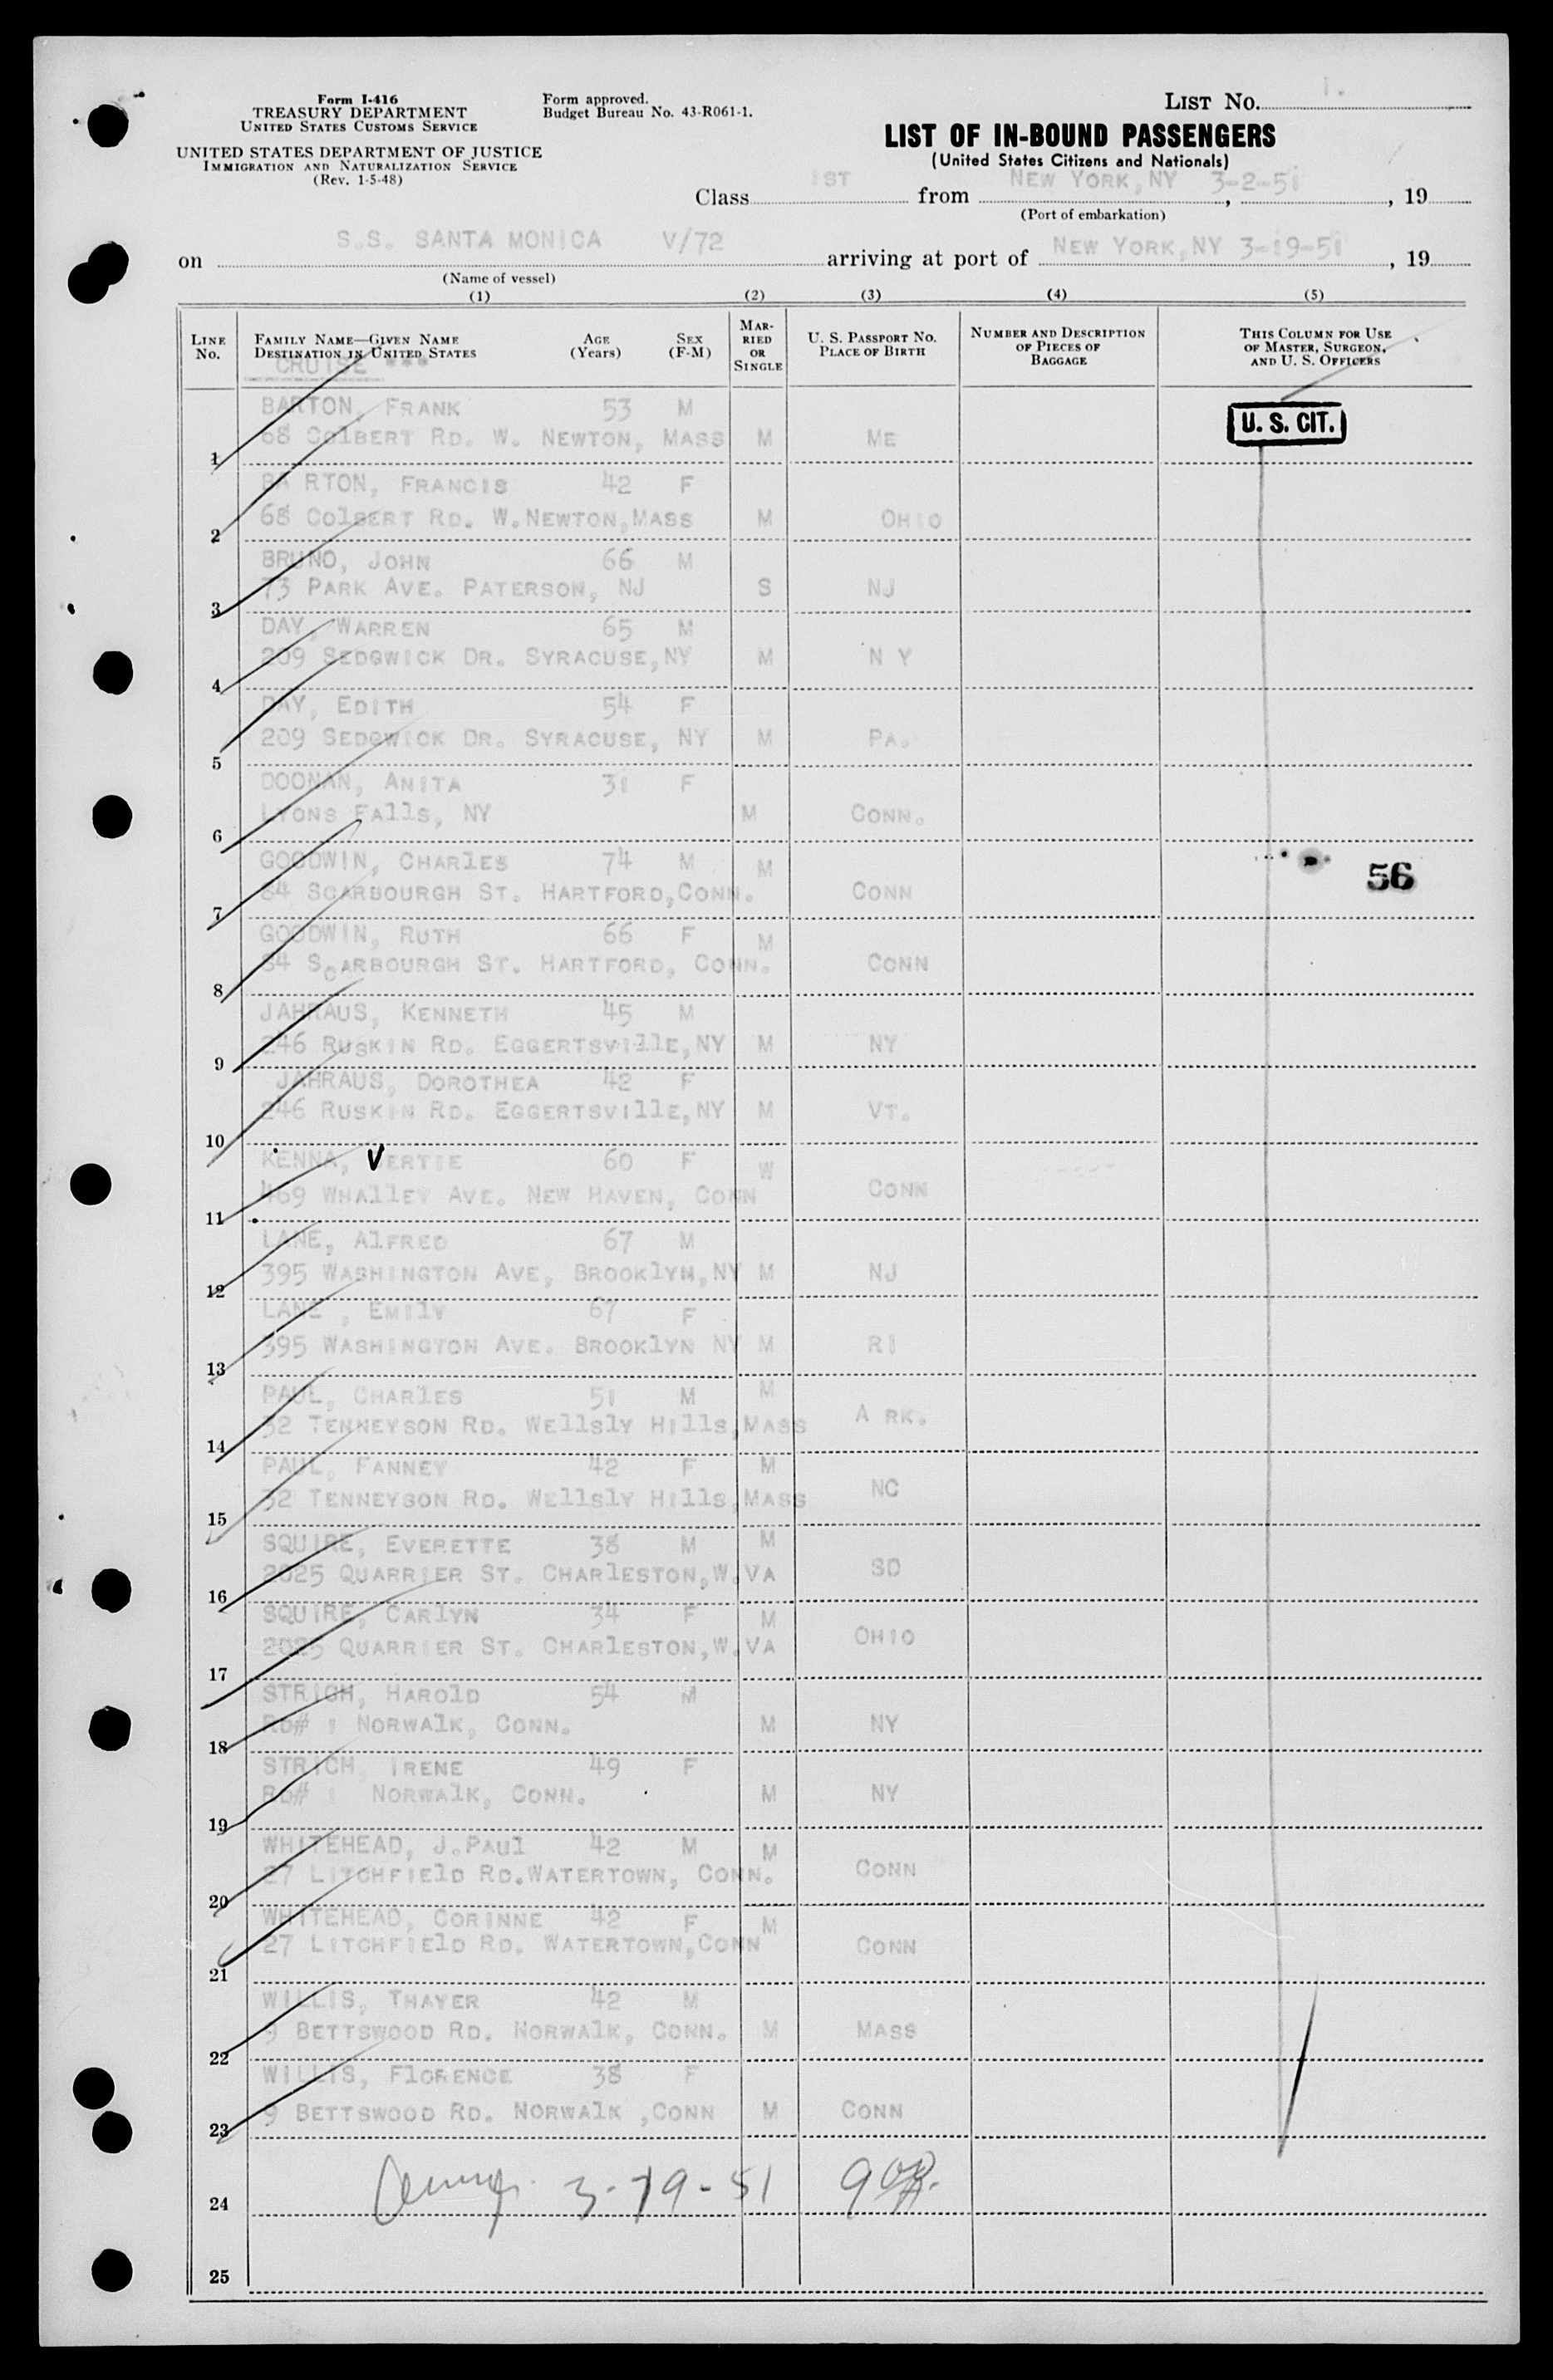 Form I-416
TREASURY DEPARTMENT
UNITED STATES CUSTOMS SERVICE
UNITED STATES DEPARTMENT OF JUSTICE
IMMIGRATION AND NATURALIZATION SERVICE
(Rev. 1-5-48)
Form approved.
Budget Bureau No. 43-R061-1.
LIST No. 1.
LIST OF IN-BOUND PASSENGERS
(United States Citizens and Nationals)
Class 1ST from NEW YORK, NY 3-2-51, 19
(Port of embarkation)
on S.S. SANTA MONICA V/72 arriving at port of NEW YORK, NY 3-19-51, 19
(Name of vessel)
(1) (2) (3) (4) (5)
LINE No. FAMILY NAME—GIVEN NAME DESTINATION IN UNITED STATES AGE (Years) SEX (F-M) MARRIED OR SINGLE U. S. PASSPORT NO. PLACE OF BIRTH NUMBER AND DESCRIPTION OF PIECES OF BAGGAGE THIS COLUMN FOR USE OF MASTER, SURGEON, AND U. S. OFFICERS
CRUISE ***
BARTON, FRANK 53 M
U. S. CIT.
1 68 COlBERT RD. W. NEWTON, MASS M ME
BA RTON, FRANCIS 42 F
2 68 COlBERT RD. W.NEWTON,MASS M OHIO
BRUNO, JOHN 66 M
3 73 PARK AVE. PATERSON, NJ S NJ
DAY, WARREN 65 M
4 209 SEDGWICK DR. SYRACUSE,NY M N Y
DAY, EDITH 54 F
5 209 SEDGWICK DR. SYRACUSE, NY M PA.
DOONAN, ANITA 31 F
6 LYONS FAllS, NY M CONN.
GOODWIN, CHARlES 74 M M
56
7 84 SCARBOURGH ST. HARTFORD,CONN. CONN
GOODWIN, RUTH 66 F M
8 84 SCARBOURGH ST. HARTFORD, CONN. CONN
JAHRAUS, KENNETH 45 M
9 246 RUSKIN RD. EGGERTSVIllE,NY M NY
JAHRAUS, DOROTHEA 42 F
10 246 RUSKIN RD. EGGERTSVIllE,NY M VT.
KENNA, BERTIE 60 F W
11 469 WHAllEY AVE. NEW HAVEN, CONN CONN
LANE, AlFRED 67 M
12 395 WASHINGTON AVE, BROOKlYN,NY M NJ
LANE , EMIlY 67 F
13 395 WASHINGTON AVE. BROOKlYN NY M RI
PAUL, CHARlES 51 M M
14 32 TENNEYSON RD. WEllSlY HIllS,MASS A RK.
PAUL, FANNEY 42 F M
15 32 TENNEYSON RD. WEllSlY HIllS,MASS NC
SQUIRE, EVERETTE 38 M M
16 2025 QUARRIER ST. CHARlESTON,W.VA SD
SQUIRE, CARlYN 34 F M
17 2025 QUARRIER ST. CHARlESTON,W.VA OHIO
STRICH, HAROlD 54 M
18 RD# 1 NORWAlK, CONN. M NY
STRICH, IRENE 49 F
19 RD# 1 NORWAlK, CONN. M NY
WHITEHEAD, J.PAUl 42 M M
20 27 LITCHFIElD RD.WATERTOWN, CONN. CONN
WHITEHEAD, CORINNE 42 F M
21 27 LITCHFIElD RD. WATERTOWN,CONN CONN
WILLIS, THAYER 42 M
22 9 BETTSWOOD RD. NORWAlK, CONN. M MASS
WILLIS, FlORENCE 38 F
23 9 BETTSWOOD RD. NORWAlK ,CONN M CONN
24 3-19-51
25